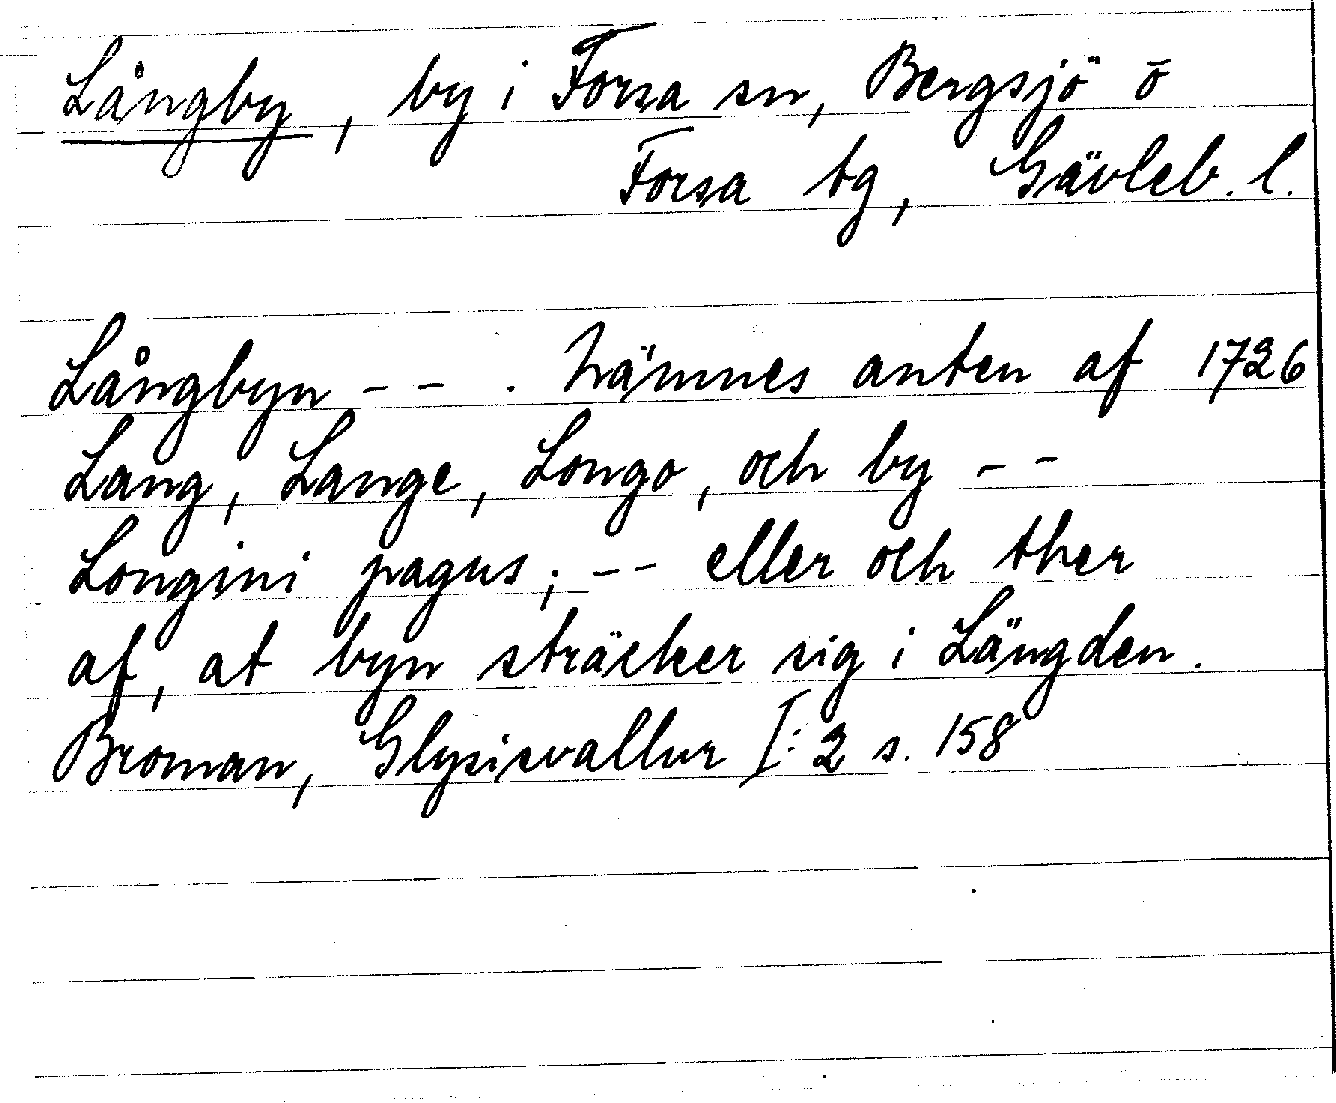 Långby, by i Forsa sn, Bergsjö o
Forsa tg, Gävleb. l.
Långbyn - - . Nämnes anten af 1726
Lang, Lange, Longo, och by - -
Longini pagus; - - eller och ther
af, at byn sträcker sig i Längden.
Broman, Glysisvallur I:2 s. 158